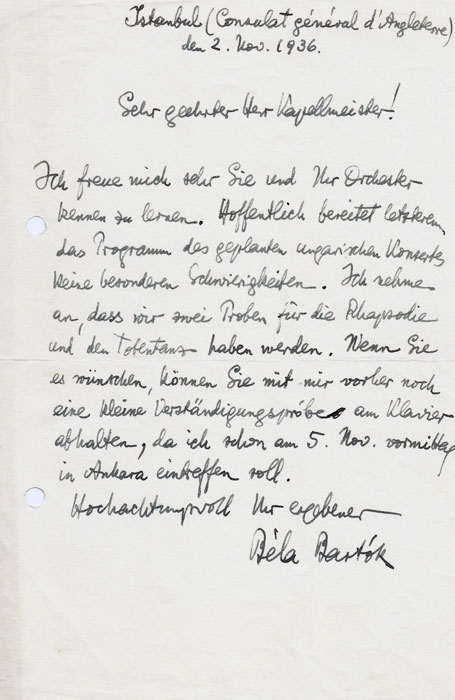 Istanbul (Consulat général d'Angleterre)
den 2. Nov. 1936.
Sehr geehrter Herr Kapellmeister!
Ich freue mich sehr Sie und Ihr Orchester
kennen zu lernen. Hoffentlich bereitet letzterem
das Programm des geplanten ungarischen Konsertes
keine besonderen Schwierigkeiten. Ich nehme
an, dass wir zwei Proben für die Rhapsodie
und den Totentanz haben werden. Wenn Sie
es wünschen, können Sie mit mir vorher noch
eine kleine Verständigungsprobe am Klavier
abhalten, da ich schon am 5. Nov. vormittag
in Ankara eintreffen soll.
Hochachtungsvoll Ihr ergebener
Béla Bartók